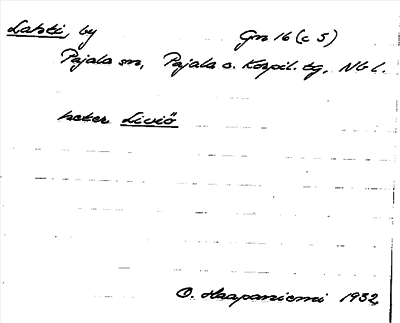 Lahti, by Gm 16 (c 5)
Pajala sn, Pajala o. Korpil. tg, Nb l.
heter Liviö
O. Haapaniemi 1932,